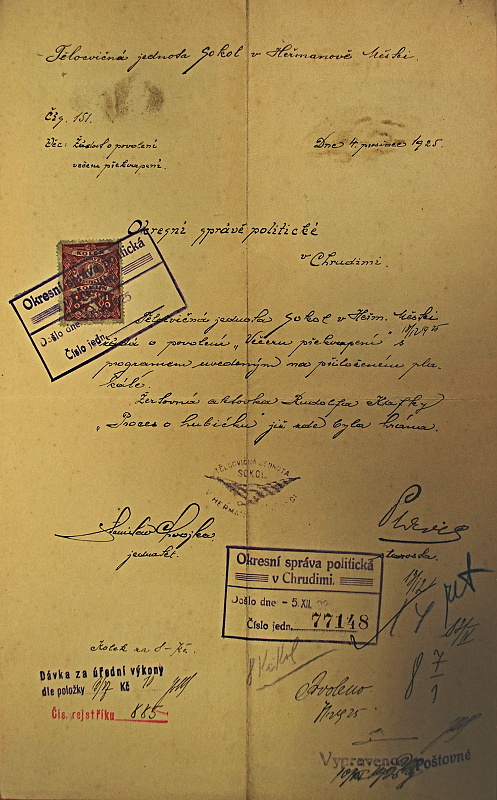 Tělocvičná jednota Sokol v Heřmanově Městci.
Čís. 151.
Věc: Žádost o povolení
večera překvapení.
Dne 4. prosince 1925.
Okresní správě politické
v Chrudimi.
Okresní politická
Došlo dne
Číslo jedn.
Tělocvičná jednota Sokol v Heřm. Městci
žádá o povolení „Večeru překvapení" s
programem uvedeným na přiloženém pla-
kátě.
Žertovná aktovka Rudolfa Kafky
„Proces o hubičku" již zde byla hrána.
TĚLOCVIČNÁ JEDNOTA
SOKOL
jednatel.
starosta.
Okresní správa politická
v Chrudimi.
Došlo dne - 5. XII.
Číslo jedn. 77148
Kolek za 8 - Kč.
8 Kč kol
Dávka za úřední výkony
dle položky Kč 10
Čís. rejstříku 885
Povoleno
Vypraveno Poštovné